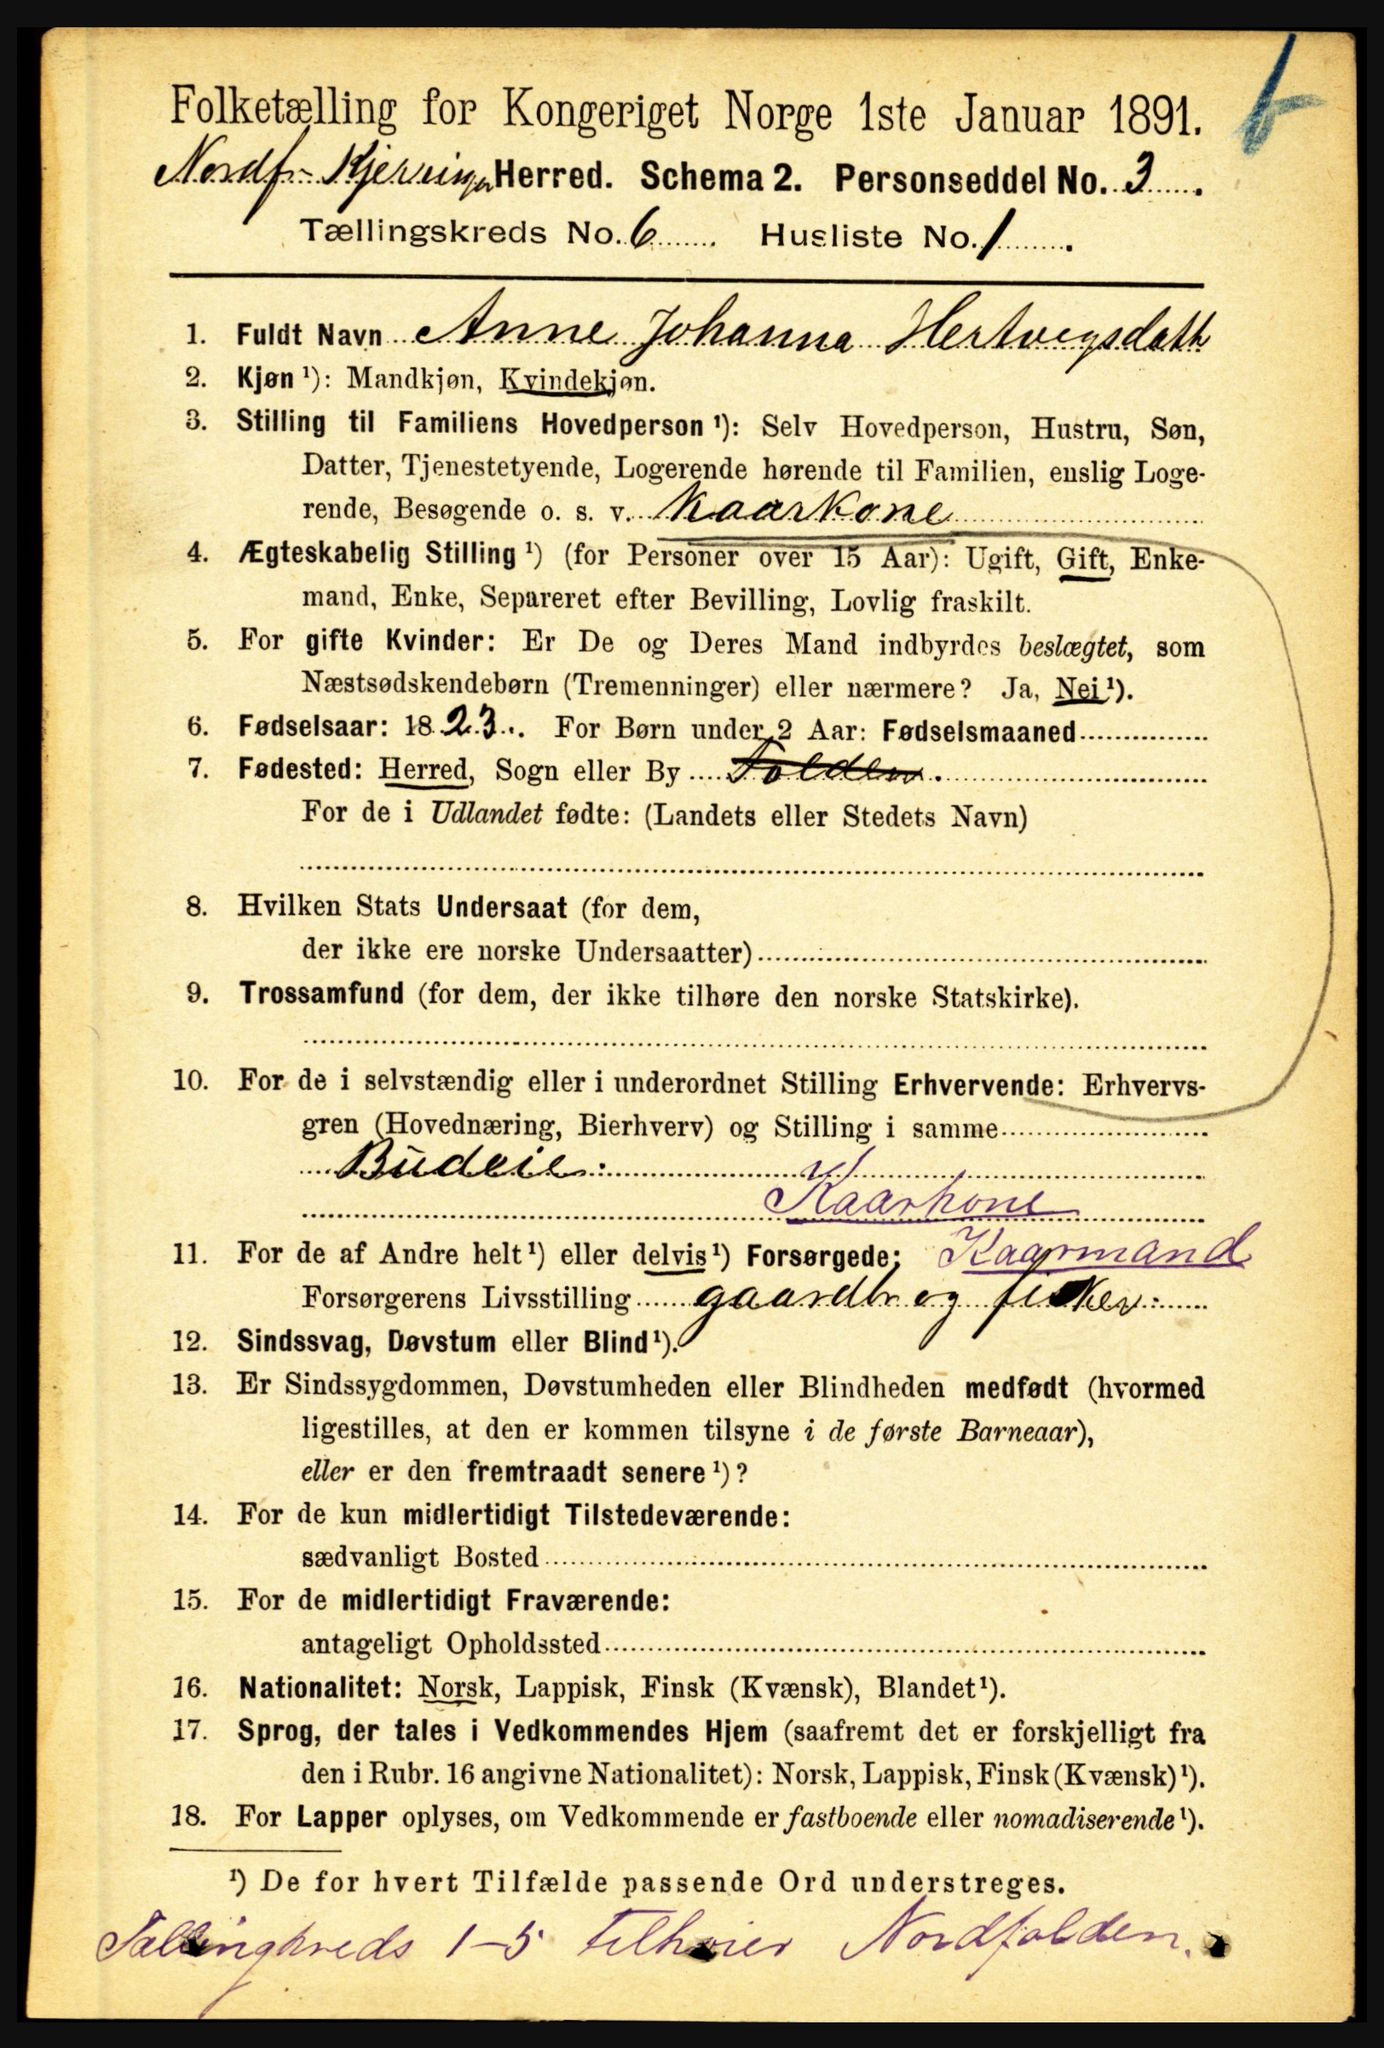 Folketælling for Kongeriget Norge 1ste Januar 1891.
Nordf-Kjerringø Herred. Schema 2. Personseddel No. 3.
Tællingskreds No. 6. Husliste No. 1.
1. Fuldt Navn Anne Johanna Hertvegsdatt
2. Kjøn ¹): Mandkjøn, Kvindekjøn.
3. Stilling til Familiens Hovedperson ¹): Selv Hovedperson, Hustru, Søn,
Datter, Tjenestetyende, Logerende hørende til Familien, enslig Loge-
rende, Besøgende o. s. v. Kaarkone
4. Ægteskabelig Stilling ¹) (for Personer over 15 Aar): Ugift, Gift, Enke-
mand, Enke, Separeret efter Bevilling, Lovlig fraskilt.
5. For gifte Kvinder: Er De og Deres Mand indbyrdes beslægtet, som
Næstsødskendebørn (Tremenninger) eller nærmere? Ja, Nei ¹).
6. Fødselsaar: 1823. For Børn under 2 Aar: Fødselsmaaned
7. Fødested: Herred, Sogn eller By Folden.
For de i Udlandet fødte: (Landets eller Stedets Navn)
8. Hvilken Stats Undersaat (for dem,
der ikke ere norske Undersaatter)
9. Trossamfund (for dem, der ikke tilhøre den norske Statskirke).
10. For de i selvstændig eller i underordnet Stilling Erhvervende: Erhvervs-
gren (Hovednæring, Bierhverv) og Stilling i samme
Budeie.
Kaarkone
11. For de af Andre helt ¹) eller delvis ¹) Forsørgede: Kaarmand
Forsørgerens Livsstilling gaardbr og fisker.
12. Sindssvag, Døvstum eller Blind ¹).
13. Er Sindssygdommen, Døvstumheden eller Blindheden medfødt (hvormed
ligestilles, at den er kommen tilsyne i de første Barneaar),
eller er den fremtraadt senere ¹)?
14. For de kun midlertidigt Tilstedeværende:
sædvanligt Bosted
15. For de midlertidigt Fraværende:
antageligt Opholdssted
16. Nationalitet: Norsk, Lappisk, Finsk (Kvænsk), Blandet ¹).
17. Sprog, der tales i Vedkommendes Hjem (saafremt det er forskjelligt fra
den i Rubr. 16 angivne Nationalitet): Norsk, Lappisk, Finsk (Kvænsk) ¹).
18. For Lapper oplyses, om Vedkommende er fastboende eller nomadiserende ¹).
¹) De for hvert Tilfælde passende Ord understreges.
Tællingkreds 1-5 tilhører Nordfolden.